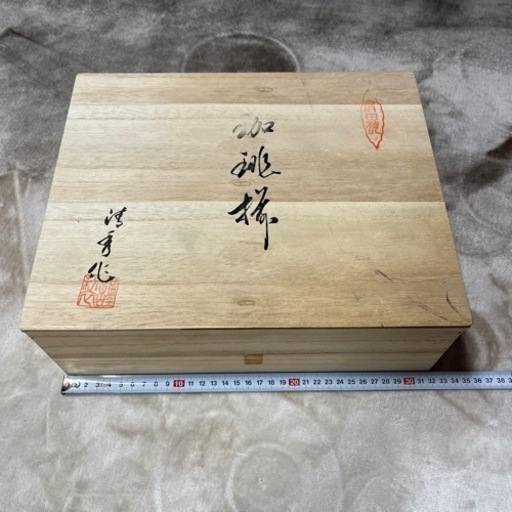 珈琲揃
清秀作
2 3 4 5 6 7 8 9 10 11 12 13 14 15 16 17 18 19 20 21 22 23 24 25 26 27 28 29 30 31 32 33 34 35 36 37 38